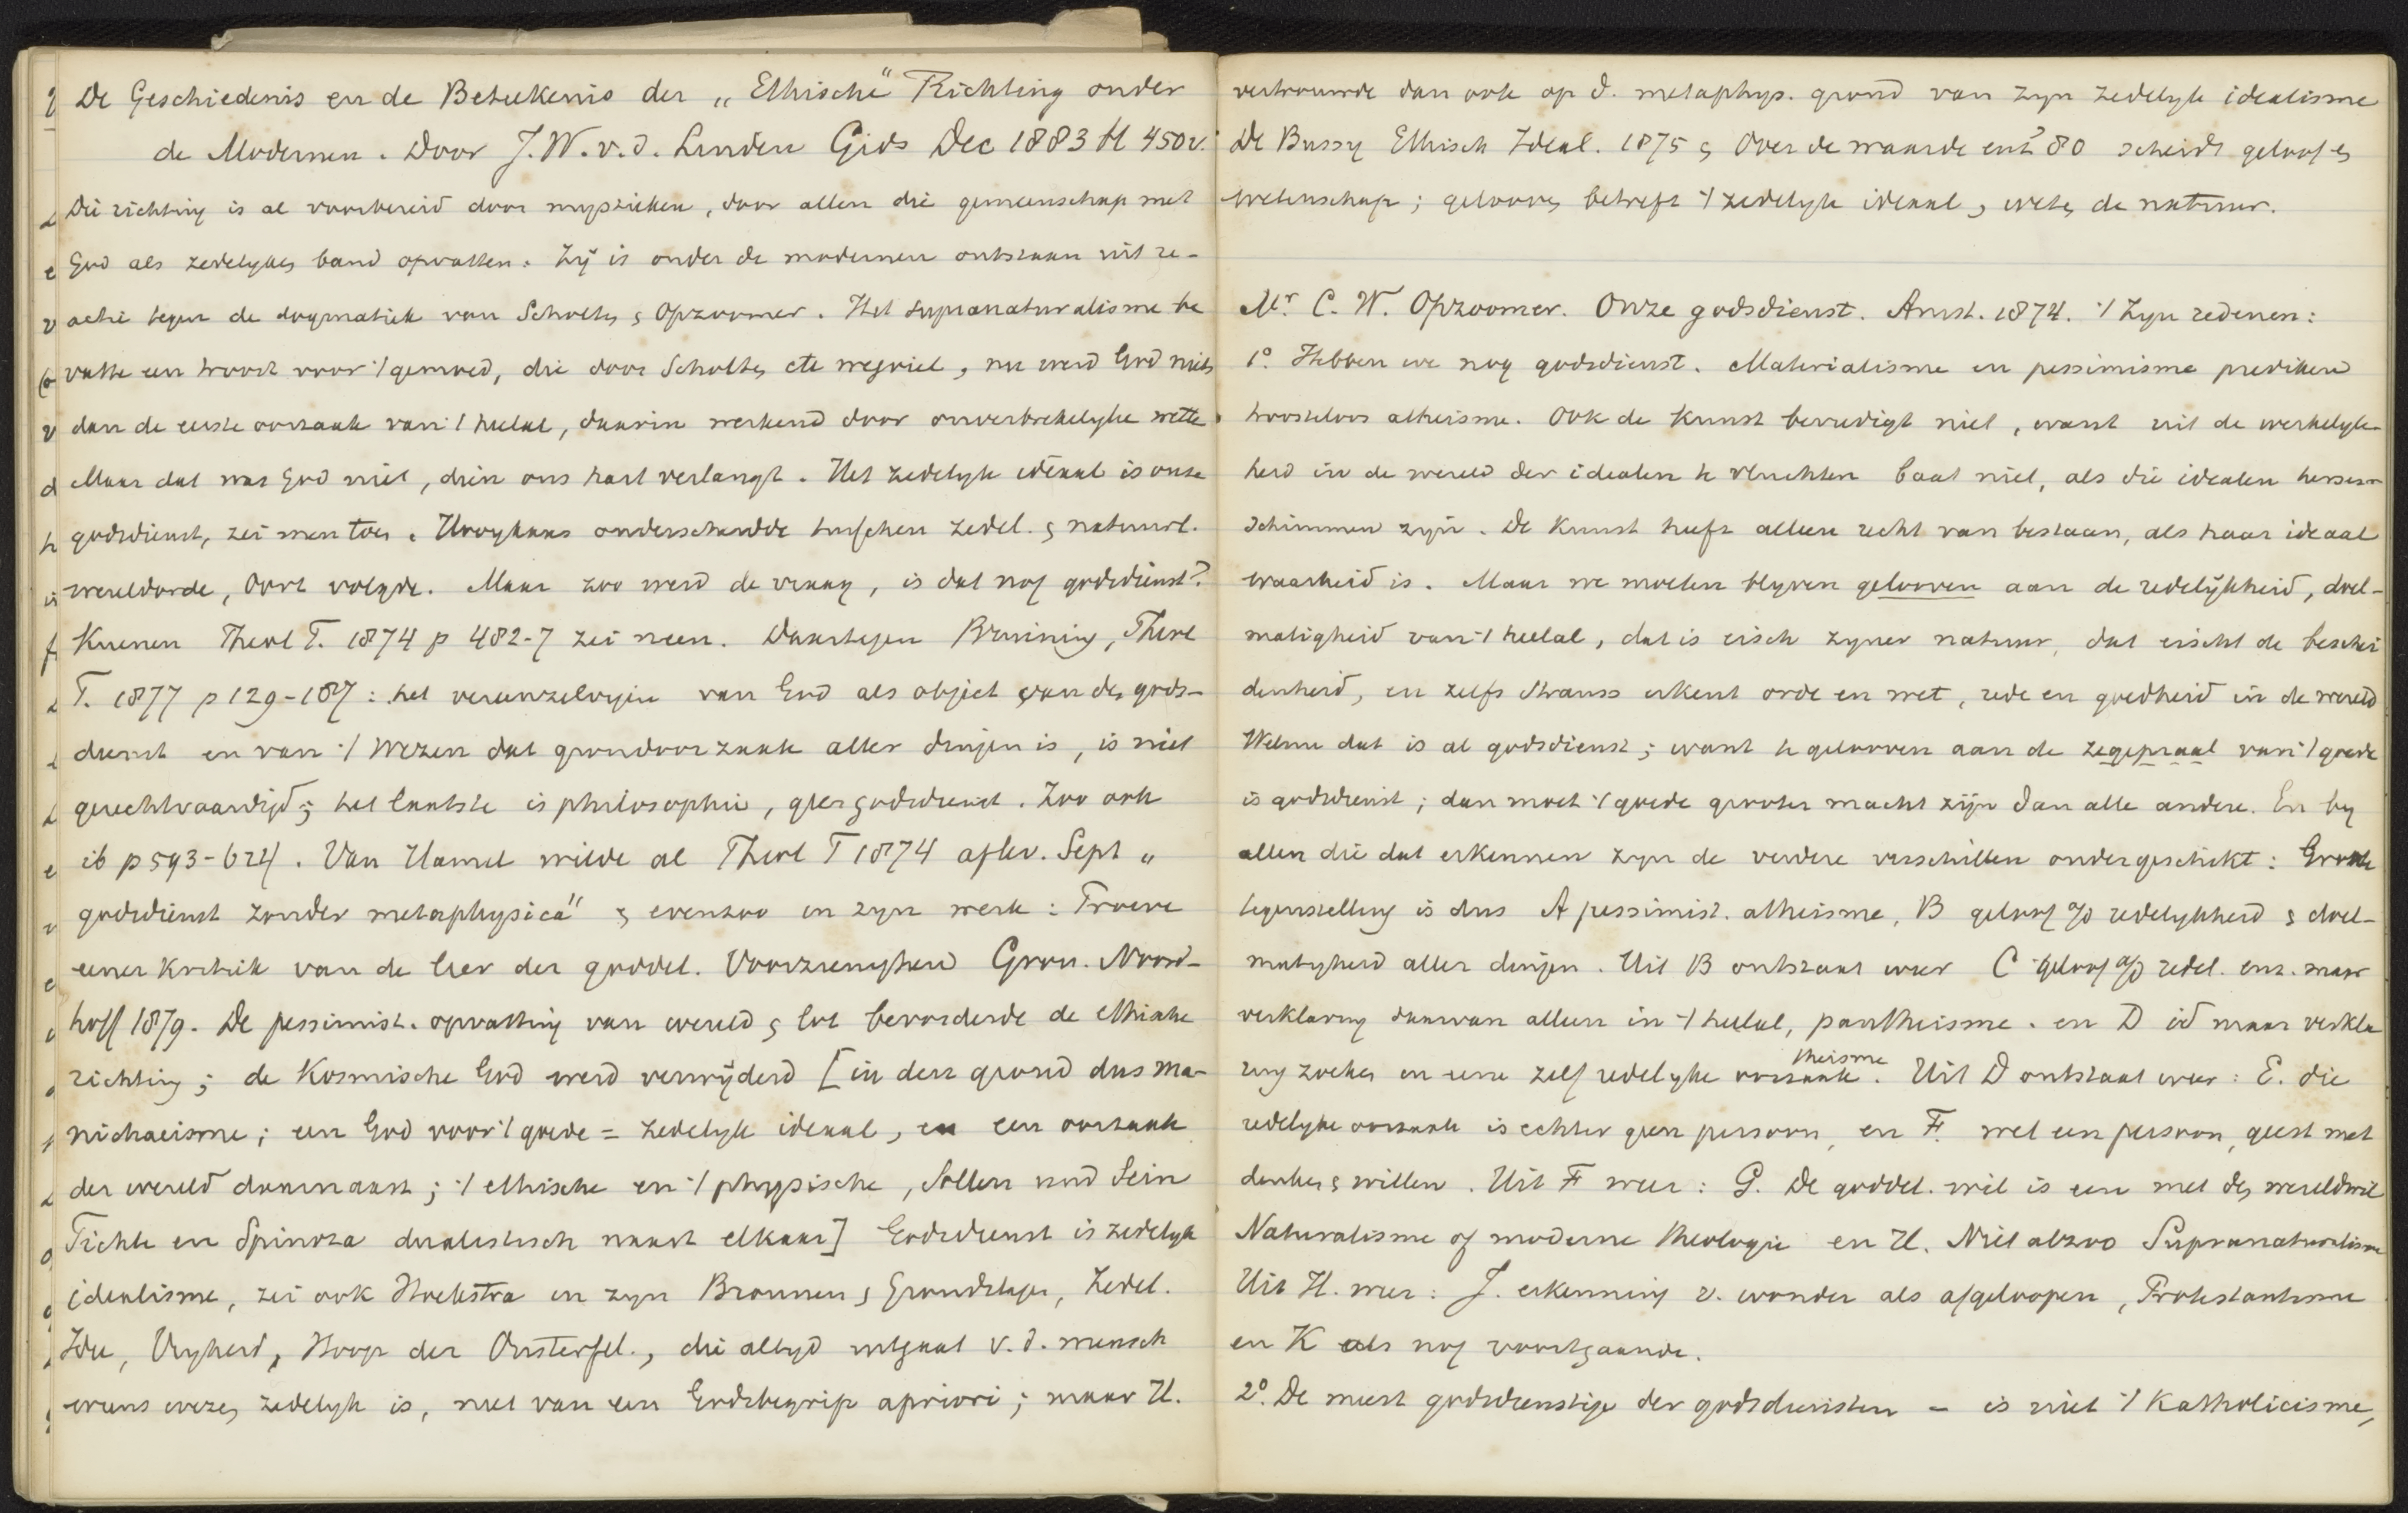 De Geschiedenis en de Beteekenis der „Ethische" Richting onder
de Modernen. Door J. W. v. d. Linden Gids Dec 1883 bl 450v.
Die richting is al voorbereid door mystieken, door allen die gemeenschap met
God als zedelyken band opvatten. Zy is onder de modernen ontstaan uit re-
actie tegen de dogmatiek van Scholten & Opzoomer. Het supranaturalisme be
vatte een troost voor 't gemoed, die door Scholten etc wegviel, nu werd God niets
dan de eerste oorzaak van 't heelal, daarin werkend door onverbrekelyke wette.
Maar dat was God niet, dien ons hart verlangt. Het zedelyk ideaal is onze
godsdienst, zei men toen. Hooykaas onderscheidde tusschen zedel. & natuurl.
wereldorde, Oort volgde. Maar zoo werd de vraag, is dat nog godsdienst?
Kuenen Theol T. 1874 p 482-7 zei neen. Daartegen Bruining, Theol
T. 1877 p 129-187: het vereenzelvigen van God als object van den gods-
dienst en van 't Wezen dat grondoorzaak aller dingen is, is niet
gerechtvaardigd; het laatste is philosophie, geen godsdienst. Zoo ook
ib p 593-624. Van Hamel wilde al Theol T 1874 aflev. Sept „
godsdienst zonder metaphysica" & evenzoo in zyn werk: Proeve
eener Kritiek van de leer der goddel. Voorzienigheid Gron. Noord-
hoff 1879. De pessimist. opvatting van wereld & lot bevorderde de ethische
richting; de Kosmische God werd verwyderd [in den grond dus Ma-
nichaeisme; een God voor 't goede = zedelyk ideaal, en een oorzaak
der wereld daarnaast; 't ethische en 't physische, Sollen und Sein
Fichte en Spinoza dualistisch naast elkaar] Godsdienst is zedelyk
idealisme, zei ook Hoekstra in zyn Bronnen & Grondslagen, Zedel.
Idee, Vryheid, Hoop der Onsterfel., die altyd uitgaat v. d. mensch
wiens wezen zedelyk is, niet van een Godsbegrip apriori; maar H.
vertrouwde dan ook op d. metaphys. grond van zyn zedelyk idealisme
De Bussy Ethisch Ideal. 1875 & Over de waarde enz 80 scheidt geloof &
wetenschap; gelooven betreft 't zedelyk ideaal, weten de natuur.
Mr. C. W. Opzoomer. Onze godsdienst. Amst. 1874. 't Zyn redenen:
1° Hebben we nog godsdienst. Materialisme en pessimisme prediken
troosteloos atheisme. Ook de Kunst bevredigt niet, want uit de werkelyk-
heid in de wereld der idealen te vluchten baat niet, als die idealen hersen-
schimmen zyn. De kunst heeft alleen recht van bestaan, als haar ideaal
waarheid is. Maar we moeten blyven gelooven aan de redelykheid, doel-
matigheid van 't heelal, dat is eisch zyner natuur, dat eischt de beschei
denheid, en zelfs Strauss erkent orde en wet, rede en goedheid in de wereld
Welnu dat is al godsdienst; want te gelooven aan de zegepraal van 't goede
is godsdienst; dan moet 't goede grooter macht zijn dan alle andere. En by
allen die dat erkennen zyn de verdere verschillen ondergeschikt: Groote
tegenstelling is dus A pessimist. atheisme, B geloof a/d redelykheid & doel-
matigheid aller dingen. Uit B ontstaat weer C geloof a/d redel. enz. maar
verklaring daarvan alleen in 't heelal, pantheisme. en D id maar verkla
ring zoeken in eene zelf redelyke oorzaak theisme. Uit D ontstaat weer: E. die
redelyke oorzaak is echter geen persoon, en F. wel een persoon, geest met
denken & willen. Uit F weer: G. De goddel. wil is een met den wereldwil
Naturalisme of moderne theologie en H. Niet alzoo Supranaturalisme
Uit H. weer: J. erkenning v. wonder als afgeloopen, Protestantisme
en K als nog voortgaande.
2° De meest godsdienstige der godsdiensten - is niet 't Katholicisme,